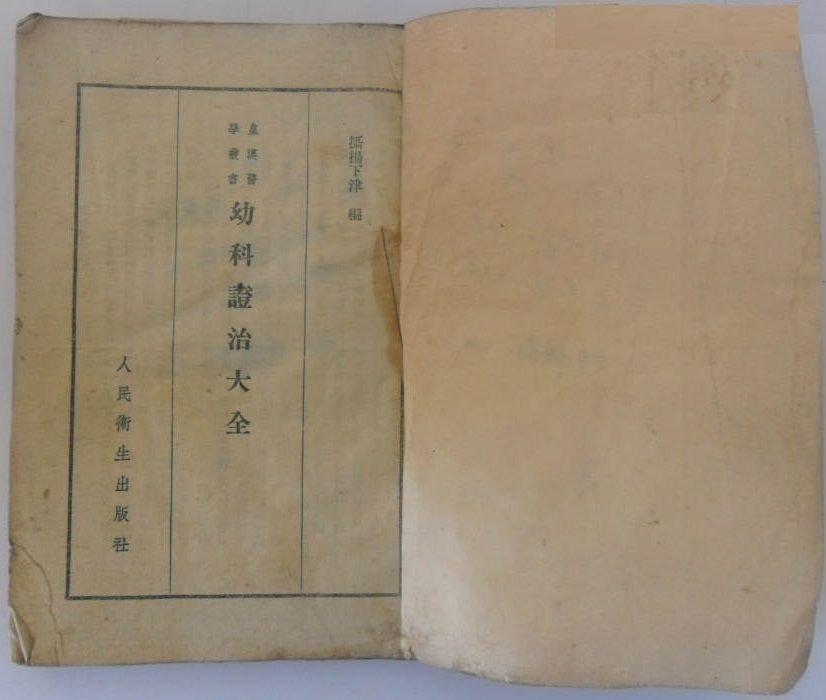 攝揚下津 編
皇漢醫
學叢書
幼科證治大全
人民衛生出版社